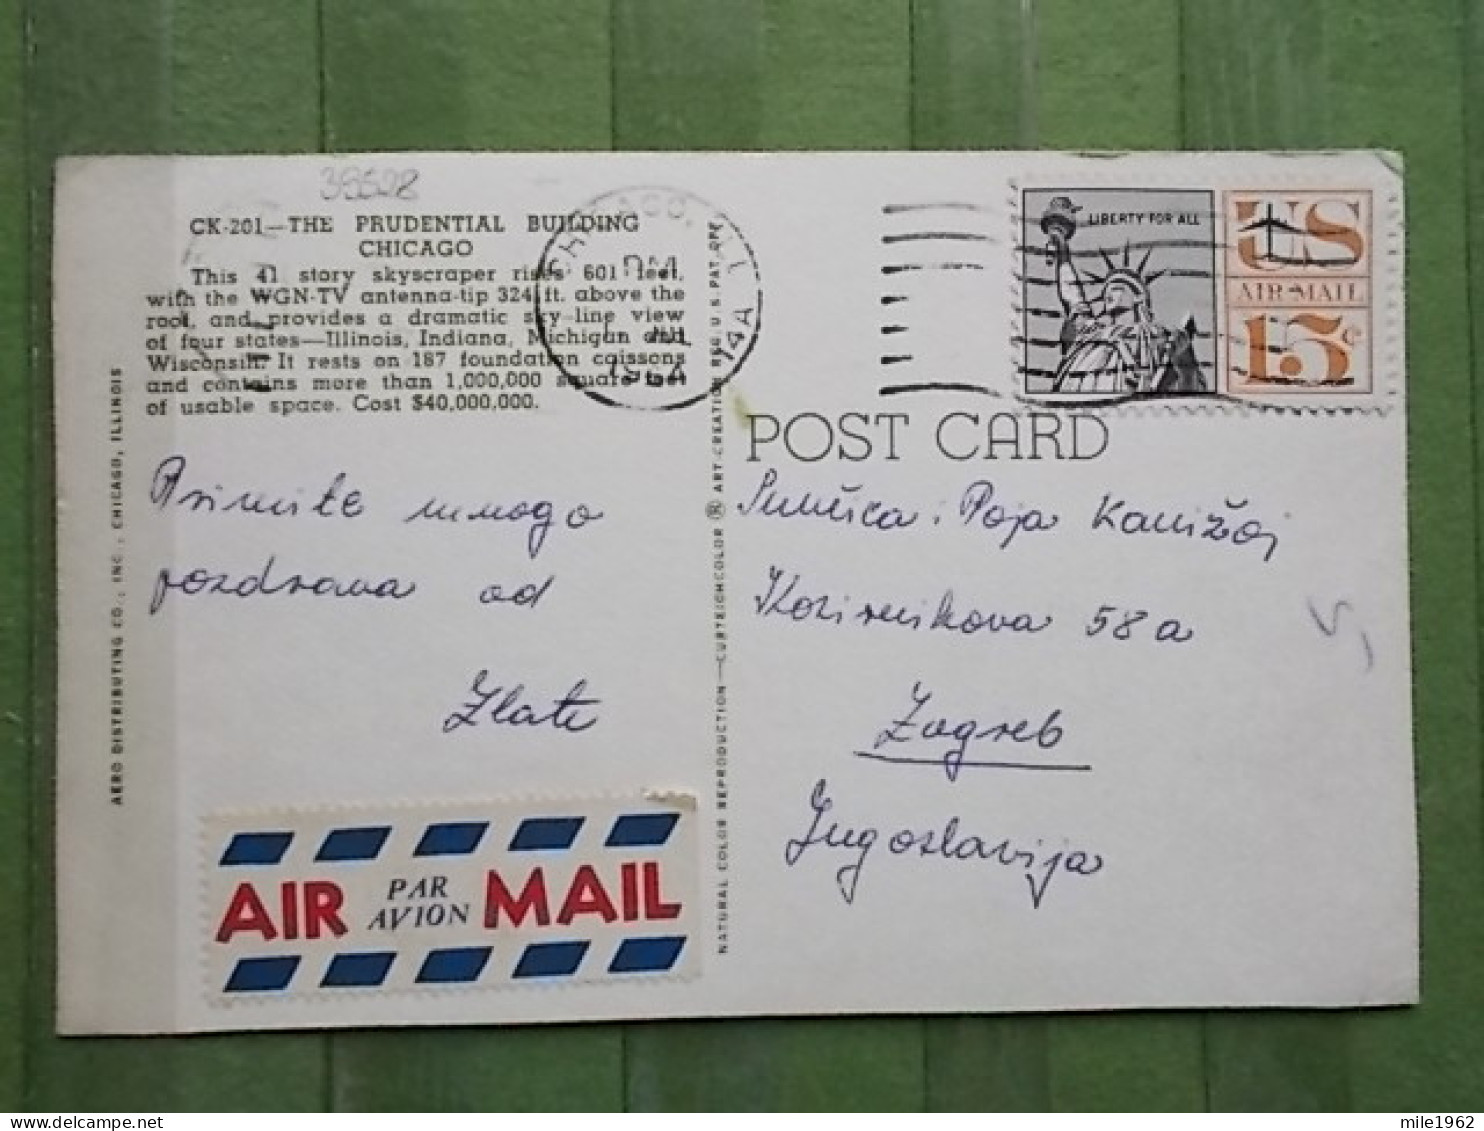 39528
CK-201—THE PRUDENTIAL BUILDING
CHICAGO
This 41 story skyscraper rises 601 feet,
with the WGN-TV antenna-tip 324 ft. above the
roof, and provides a dramatic sky-line view
of four states—Illinois, Indiana, Michigan and
Wisconsin. It rests on 187 foundation caissons
and contains more than 1,000,000 square feet
of usable space. Cost $40,000,000.
AERO DISTRIBUTING CO., INC., CHICAGO, ILLINOIS
Primite mnogo
pozdrava od
Zlate
AIR PAR AVION MAIL
NATURAL COLOR REPRODUCTION—CURTEICHCOLOR ® ART-CREATION REG. U.S. PAT. OFF.
CHICAGO, ILL
PM
14A
LIBERTY FOR ALL
US
AIR MAIL
15¢
POST CARD
Sunčica i Poja Kanižaj
Kozirnikova 58a
Zagreb
Jugoslavija
mile1962